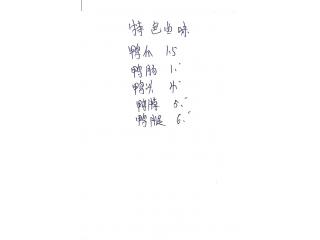 特色卤味
鸭爪 1.5
鸭肠 1.
鸭头 4.
鸭脖 5.
鸭腿 6.